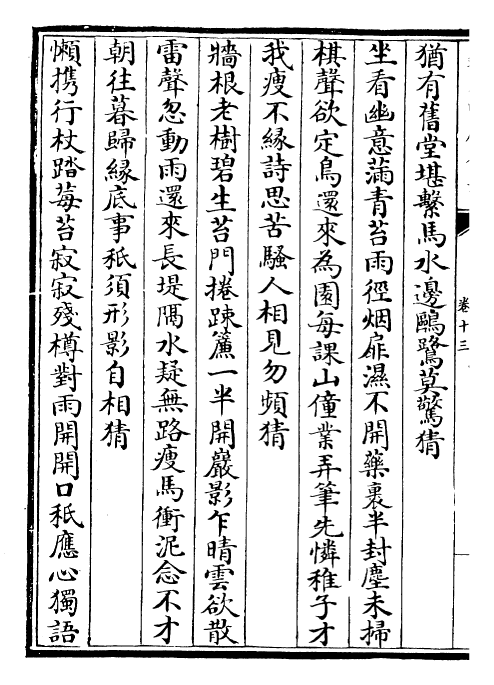 猶有舊堂堪繫馬水邊鷗鷺莫驚猜
坐看幽意滿青苔雨徑烟扉濕不開藥裹半封塵未掃
棋聲欲定鳥還來為園每課山僮業弄筆先憐稚子才
我瘦不緣詩思苦騷人相見勿頻猜
牆根老樹碧生苔門捲踈簾一半開巖影乍晴雲欲散
雷聲忽動雨還來長堤隔水疑無路瘦馬衝泥念不才
朝往暮歸緣底事秖須形影自相猜
懶携行杖踏莓苔寂寂殘樽對雨開開口秖應心獨語
卷十三